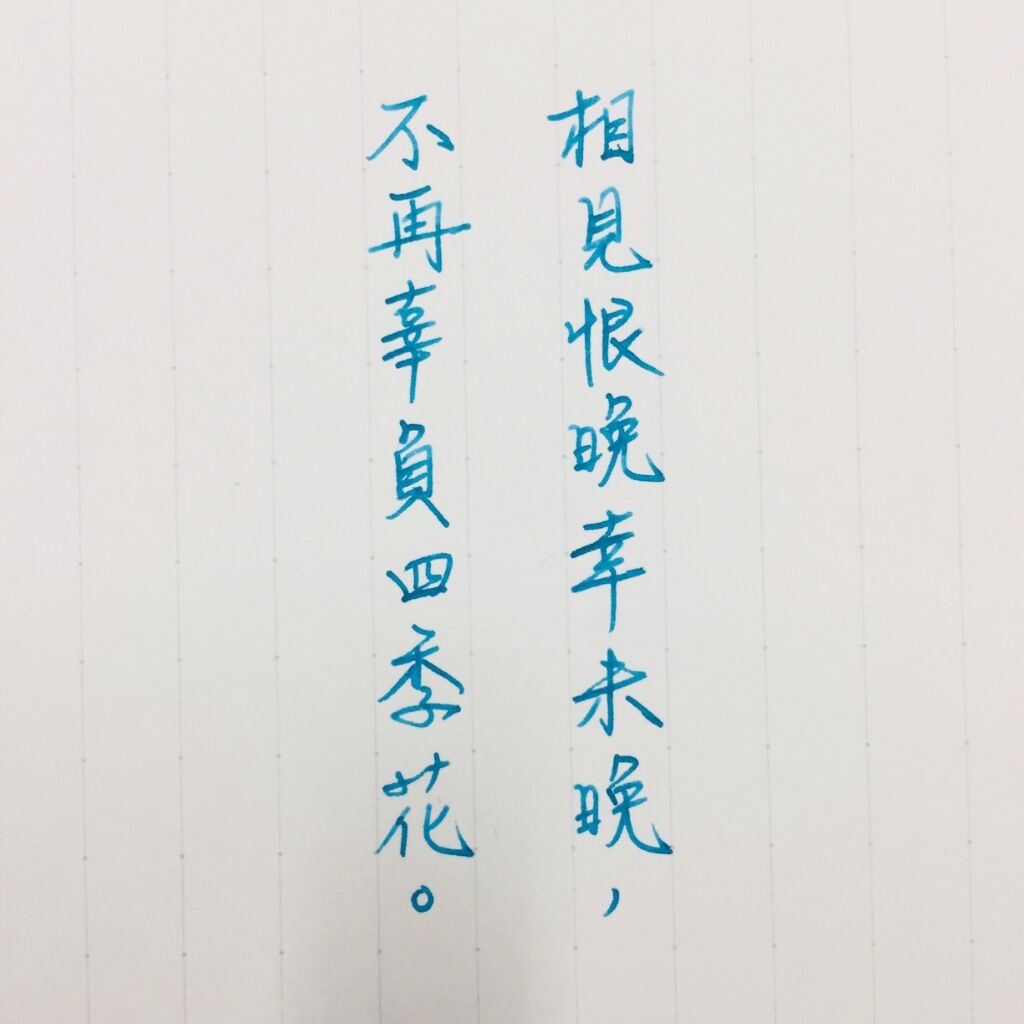 相見恨晚幸未晚，
不再辜負四季花。